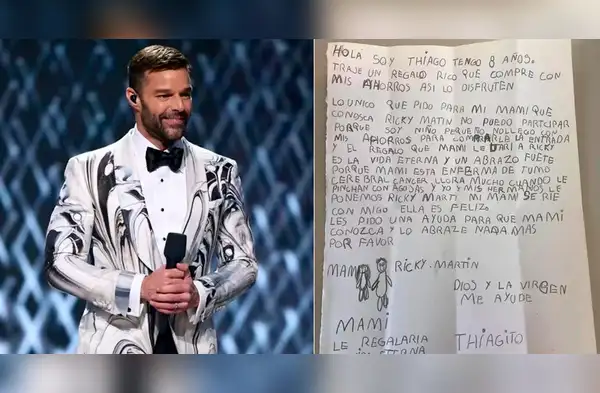 HOLA SOY THIAGO TENGO 8 AÑOS.
TRAJE UN REGALO RICO QUE COMPRE CON
MIS AHORROS ASI LO DISFRUTEN
LO UNICO QUE PIDO PARA MI MAMI QUE
CONOSCA RICKY MATIN NO PUEDO PARTCIPAR
PORQUE SOY NIÑO PEQUEÑO NOLLEGO CON
MIS AHORROS PARA COMPRARLE LA ENTRADA
Y EL REGALO QUE MAMI LE DARIA RICKY
ES LA VIDA ETERNA Y UN ABRAZO FUETE
PORQUE MAMI ESTA ENFERMA DE TUMO
CEREBRAL CANCER LLORA MUCHO CUANDO LE
PINCHAN CON AGOJAS Y YO Y MIS HERMANOS LE
PONEMOS RICKY MARTI MI MAMI SE RIE
CON MIGO ELLA ES FELIZ.
LES PIDO UNA AYUDA PARA QUE MAMI
CONOZCA Y LO ABRAZE NADA MAS
POR FAVOR
MAMI RICKY.MARTIN
DIOS Y LA VIRGEN
ME AYUDE
MAMI
LE REGALARIA THIAGITO
ETERNA